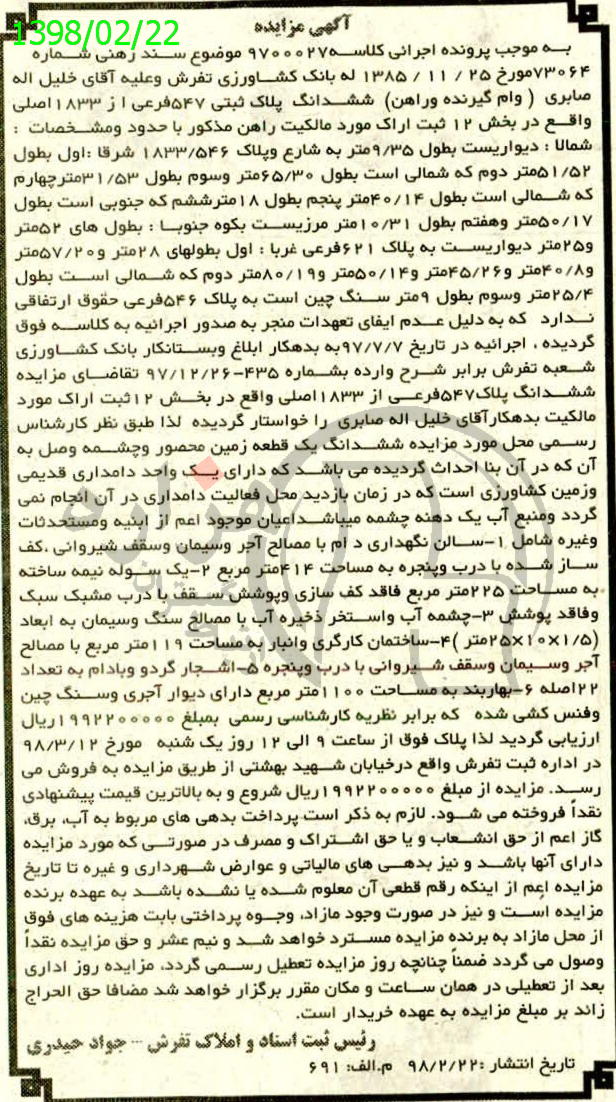 1398/02/22
آگهی مزایده
به موجب پرونده اجرائی کلاسه۹۷۰۰۰۲۷ موضوع سند رهنی شماره
۷۳۰۶۴مورخ ۲۵ / ۱۱ / ۱۳۸۵ له بانک کشاورزی تفرش وعلیه آقای خلیل اله
صابری ( وام گیرنده وراهن) ششدانگ پلاک ثبتی ۵۴۷فرعی ا ز ۱۸۳۳اصلی
واقع در بخش ۱۲ ثبت اراک مورد مالکیت راهن مذکور با حدود ومشخصات :
شمالا : دیواریست بطول ۹/۳۵متر به شارع وپلاک ۱۸۳۳/۵۴۶ شرقا :اول بطول
۵۱/۵۲متر دوم که شمالی است بطول ۶۵/۳۰متر وسوم بطول ۳۱/۵۳مترچهارم
که شمالی است بطول ۴۰/۱۴متر پنجم بطول ۱۸مترششم که جنوبی است بطول
۵۰/۱۷متر وهفتم بطول ۱۰/۳۱متر مرزیست بکوه جنوبا : بطول های ۵۲متر
و۲۵متر دیواریست به پلاک ۶۲۱فرعی غربا : اول بطولهای ۲۸متر و۵۷/۲۰متر
و۴۰/۸متر و۴۵/۲۶متر و۵۰/۱۴متر و۸۰/۱۹متر دوم که شمالی است بطول
۲۵/۴متر وسوم بطول ۹متر سنگ چین است به پلاک ۵۴۶فرعی حقوق ارتفاقی
ندارد که به دلیل عدم ایفای تعهدات منجر به صدور اجرائیه به کلاسه فوق
گردیده ، اجرائیه در تاریخ ۹۷/۷/۷به بدهکار ابلاغ وبستانکار بانک کشاورزی
شعبه تفرش برابر شرح وارده بشماره ۴۳۵-۹۷/۱۲/۲۶ تقاضای مزایده
ششدانگ پلاک۵۴۷فرعی از ۱۸۳۳اصلی واقع در بخش ۱۲ثبت اراک مورد
مالکیت بدهکارآقای خلیل اله صابری را خواستار گردیده لذا طبق نظر کارشناس
رسمی محل مورد مزایده ششدانگ یک قطعه زمین محصور وچشمه وصل به
آن که در آن بنا احداث گردیده می باشد که دارای یک واحد دامداری قدیمی
وزمین کشاورزی است که در زمان بازدید محل فعالیت دامداری در آن انجام نمی
گردد ومنبع آب یک دهنه چشمه میباشداعیان موجود اعم از ابنیه ومستحدثات
وغیره شامل ۱-سالن نگهداری د ام با مصالح آجر وسیمان وسقف شیروانی ،کف
ساز شده با درب وپنجره به مساحت ۴۱۴متر مربع ۲-یک سوله نیمه ساخته
به مساحت ۲۲۵متر مربع فاقد کف سازی وپوشش سقف با درب مشبک سبک
وفاقد پوشش ۳-چشمه آب واستخر ذخیره آب با مصالح سنگ وسیمان به ابعاد
(۲۵×۱۰×۱/۵متر )۴-ساختمان کارگری وانبار به مساحت ۱۱۹متر مربع با مصالح
آجر وسیمان وسقف شیروانی با درب وپنجره ۵-اشجار گردو وبادام به تعداد
۲۲اصله ۶-بهاربند به مساحت ۱۱۰۰متر مربع دارای دیوار آجری وسنگ چین
وفنس کشی شده که برابر نظریه کارشناسی رسمی بمبلغ ۱۹۹۲۲۰۰۰۰۰ریال
ارزیابی گردید لذا پلاک فوق از ساعت ۹ الی ۱۲ روز یک شنبه مورخ ۹۸/۳/۱۲
در اداره ثبت تفرش واقع درخیابان شهید بهشتی از طریق مزایده به فروش می
رسد. مزایده از مبلغ ۱۹۹۲۲۰۰۰۰۰ریال شروع و به بالاترین قیمت پیشنهادی
نقداً فروخته می شود. لازم به ذکر است پرداخت بدهی های مربوط به آب، برق،
گاز اعم از حق انشعاب و یا حق اشتراک و مصرف در صورتی که مورد مزایده
دارای آنها باشد و نیز بدهی های مالیاتی و عوارض شهرداری و غیره تا تاریخ
مزایده اعم از اینکه رقم قطعی آن معلوم شده یا نشده باشد به عهده برنده
مزایده است و نیز در صورت وجود مازاد، وجوه پرداختی بابت هزینه های فوق
از محل مازاد به برنده مزایده مسترد خواهد شد و نیم عشر و حق مزایده نقداً
وصول می گردد ضمناً چنانچه روز مزایده تعطیل رسمی گردد، مزایده روز اداری
بعد از تعطیلی در همان ساعت و مکان مقرر برگزار خواهد شد مضافا حق الحراج
زائد بر مبلغ مزایده به عهده خریدار است.
رئیس ثبت اسناد و املاک تفرش -- جواد حیدری
تاریخ انتشار :۹۸/۲/۲۲ م.الف: ۶۹۱